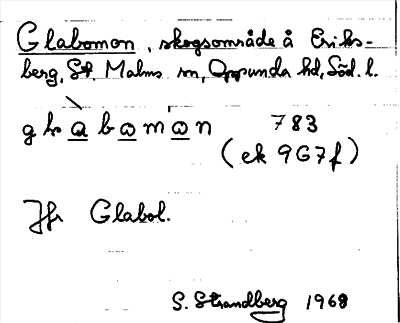 Glabomon, skogsområde å Eriks-
berg, St. Malms sn, Oppunda hd, Söd. l.
783
(ek 9G7f)
Jfr Glabol.
S. Strandberg 1968